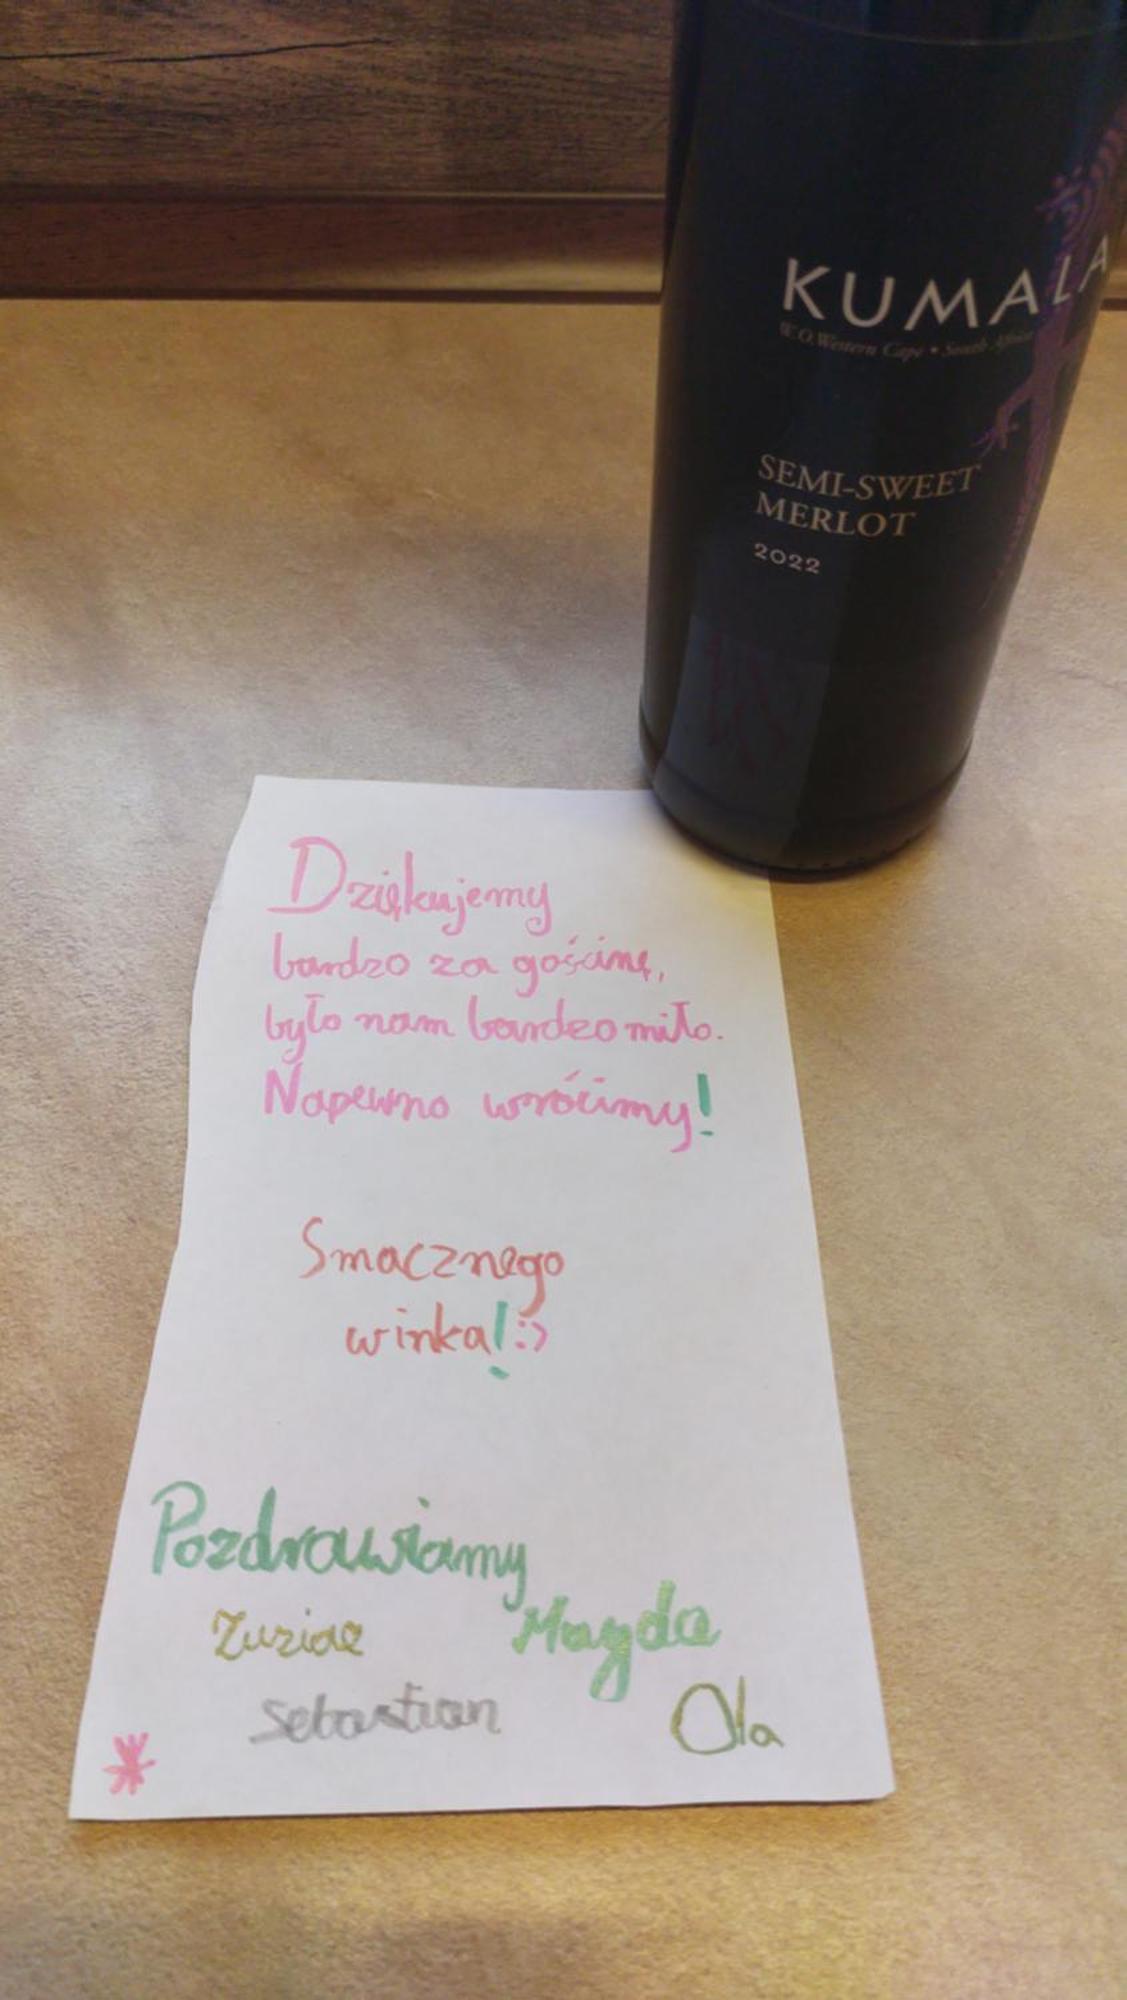 KUMALA
W.O. Western Cape • South Africa
SEMI-SWEET
MERLOT
2022
Dziękujemy
bardzo za gościnę,
było nam bardzo miło.
Napewno wrócimy!
Smacznego
winka! :)
Pozdrawiamy
Zuzia Magda
Sebastian Ola